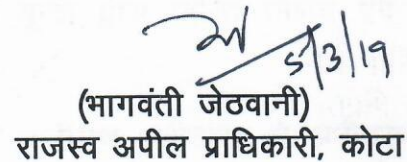 5/3/19
(भागवंती जेठवानी)
राजस्व अपील प्राधिकारी, कोटा